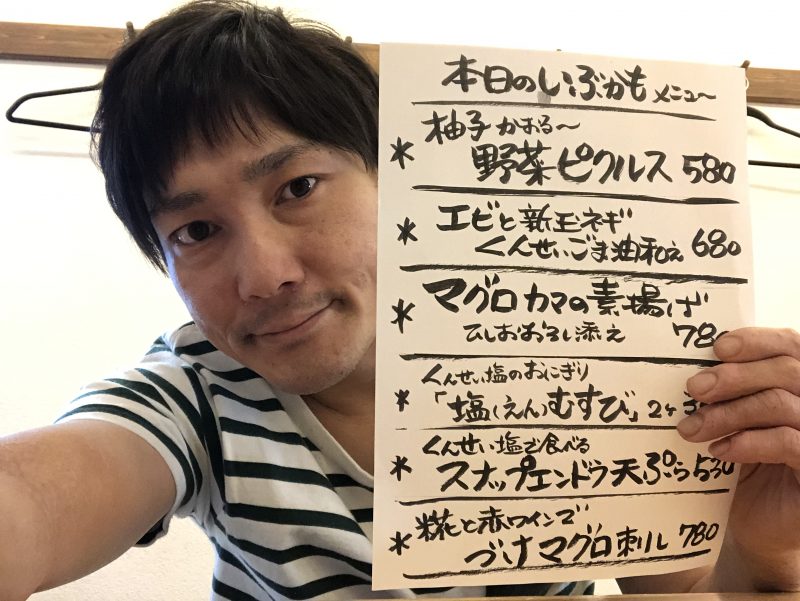 本日のいぶかも メニュ～
* 柚子かおる～
野菜ピクルス 580
* エビと新玉ネギ
くんせいごま油和え 680
* マグロカマの素揚げ
ひしおおろし添え 780
くんせい塩のおにぎり
* 「塩(えん)むすび」2ヶ
くんせい塩で食べる
* スナップエンドウ天ぷら 530
* 糀と赤ワインで
づけマグロ刺し 780